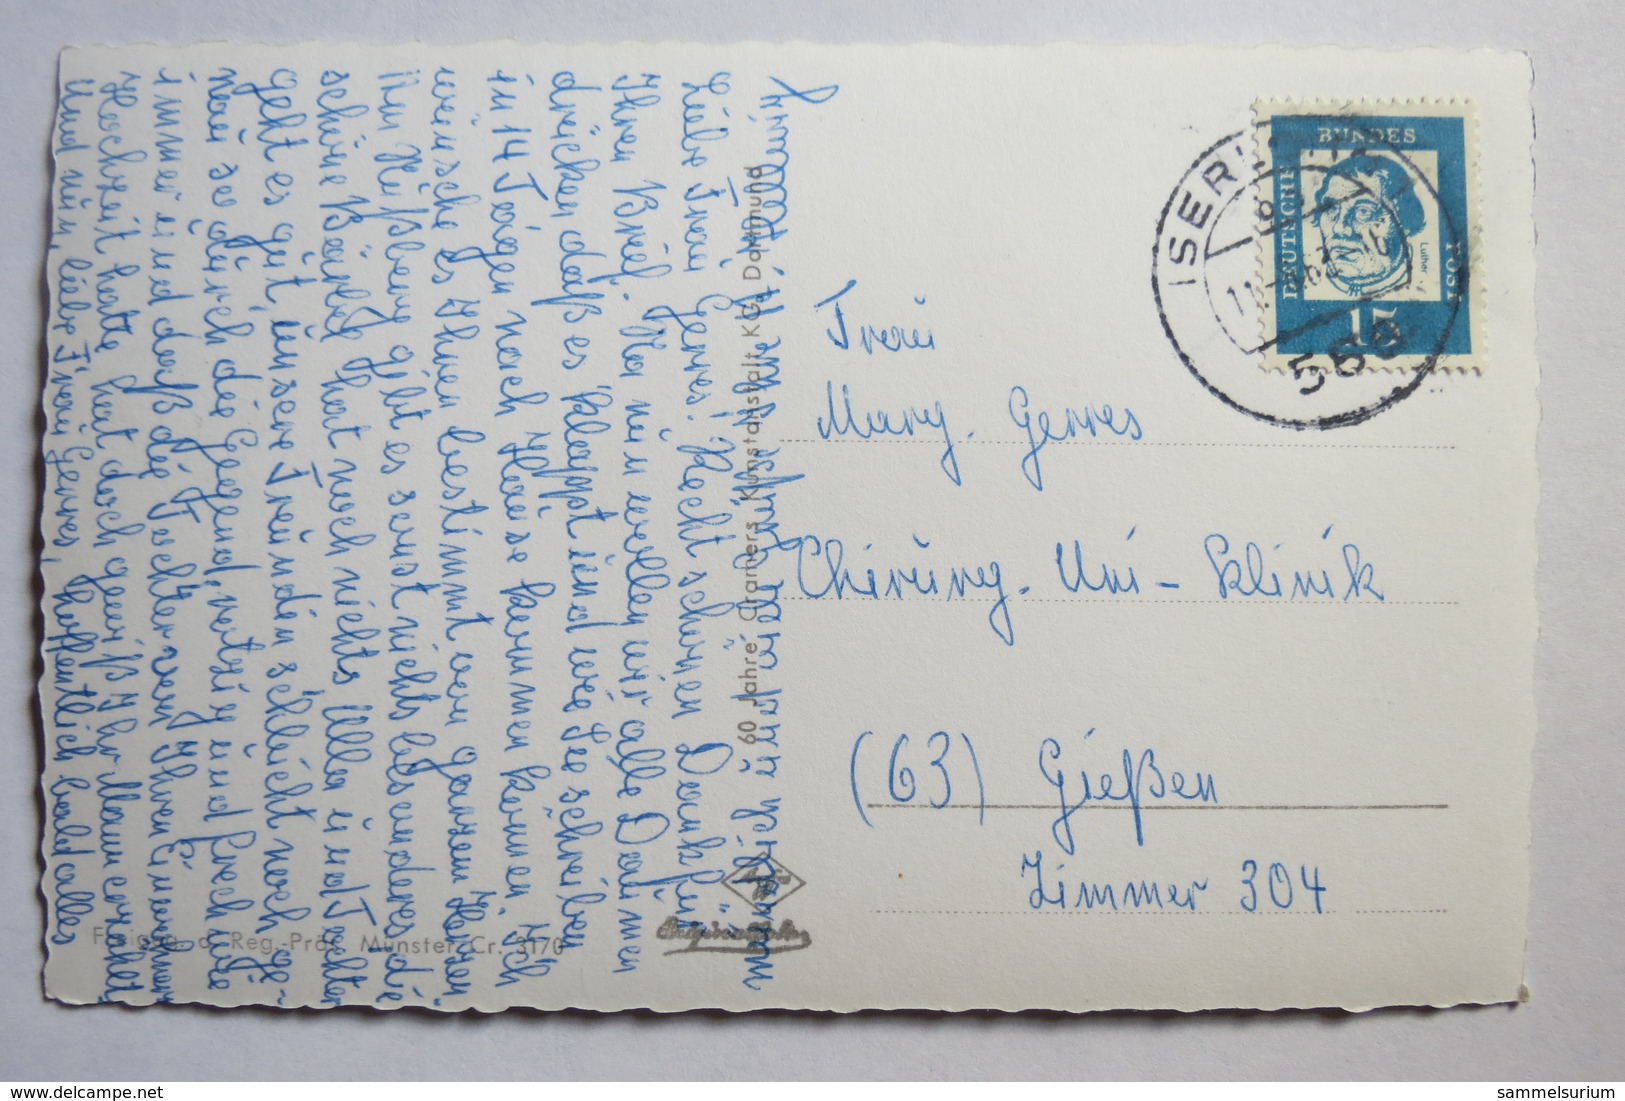 Liebe Frau Gerres! Recht schönen Dank für
Ihren Brief. Na nun wollen wir alle Daumen
drücken daß es klappt und wie Sie schreiben
in 14 Tagen nach Hause kommen können. Ich
wünsche es Ihnen bestimmt von ganzem Herzen
Am Heißberg gibt es sonst nichts besonderes die
schöne Bärbel hat noch nichts Ulla und Tochter
geht es gut, unsere Freundin schleicht noch ge-
nau so durch die Gegend, rotzig und frech wie
immer und daß die Tochter von Ihren Einwohner
Hochzeit hatte hat doch gewiß Ihr Mann erzählt
Und nun, liebe Frau Gerres, hoffentlich bald alles
Frau
Mary. Gerres
Chirurg. Uni-Klinik
(63) Gießen
Zimmer 304
60 Jahre Cramers Kunstanstalt KG, Dortmund
Freigeg. d. Reg.-Präs. Münster Cr. 3170
DEUTSCHE
BUNDES
POST
Luther
15
ISERLOHN
588
sammelsurium